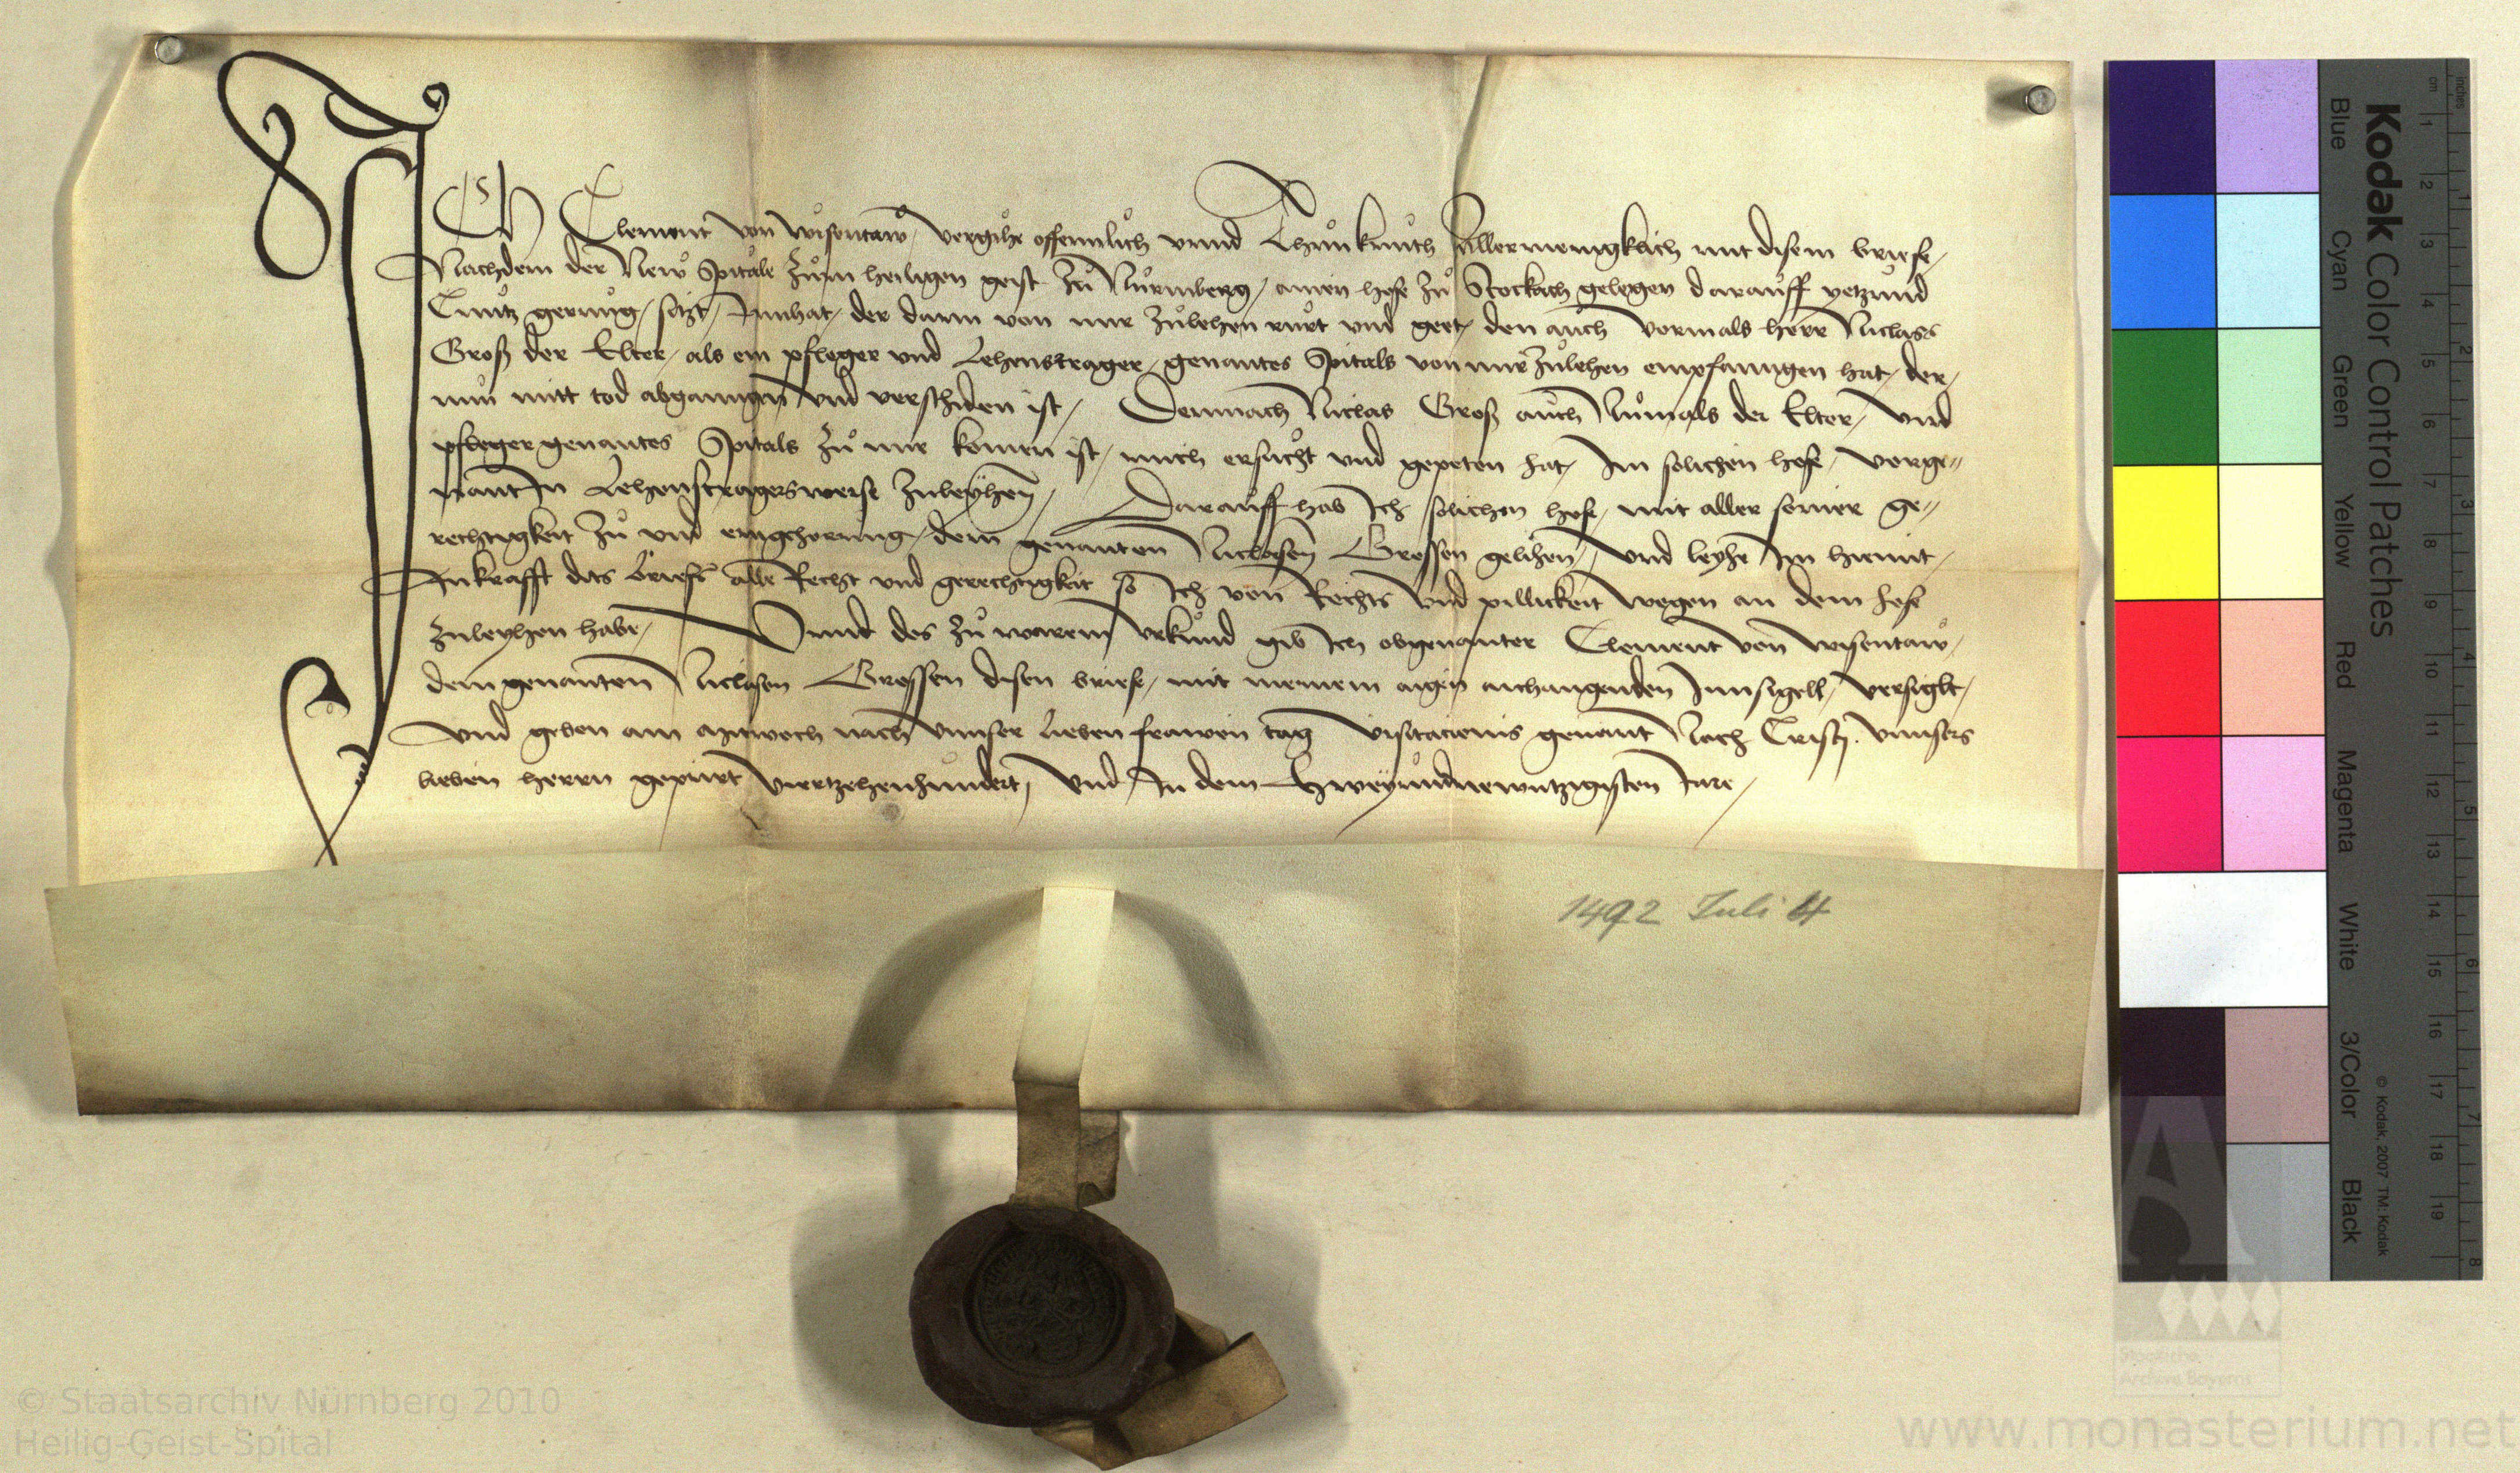 ICH Clement von wisentaw / vergihe offennlich vnnd thun kunth Allermenigklich mit disem briefe /
Nachdem der New Spitale zum heiligen geist zu Nurmberg / ainen hofe zu Stockach gelegen darauff yetzund
Cuntz gernng / sitzt / Innhat / der dann von mir zulehen rurt vnd geet / den auch vormals herr Niclass
Groß der Elter / als ein pfleger vnd Lehenstrager / genantes Spitals von mir zulehen empfanngen hat / der /
nun mitt tod abganngen vnd verschiden ist / Demnach Niclas Groß auch Numals der Elter / vnd
pfleger genantes Spitals zu mir komen ist / mich ersucht vnd gepeten hat / Im solichen hofe / vorge=
nant In Lehenstragersweise zuleyhen / Darauff hab Ich solichen hofe / mit aller seiner ge=
rechtigkeit zu vnd eingehorung / dem genanten Niclasen Grossen gelihen / vnd leyhe Im hiemit /
Inkrafft dits briefs alle Recht vnd gerechtigkeit so Ich von Rechts vnd pillickeit wegen an dem hofe
zuleyhen habe / Vnnd des zu warem vrkund gib Ich obgenanter Clement von wisentaw /
dem genanten Niclasen Grossen disen briefe / mit meinem aigen anhangenden Innsigell / versiglt /
vnd geben am mitwoch nach vnnser lieben frawen tag visitacionis genant Nach Cristj vnnsers
lieben herrn gepurt viertzehenhundert / vnd In dem Zweyundnewntzigisten Iare /
1492 Juli 4
Kodak Color Control Patches
Blue Cyan Green Yellow Red Magenta White 3/Color Black
© Kodak, 2007 TM: Kodak
cm 1 2 3 4 5 6 7 8 9 10 11 12 13 14 15 16 17 18 19
inches 1 2 3 4 5 6 7 8
Staatliche
Archive Bayerns
© Staatsarchiv Nürnberg 2010
Heilig-Geist-Spital
www.monasterium.net